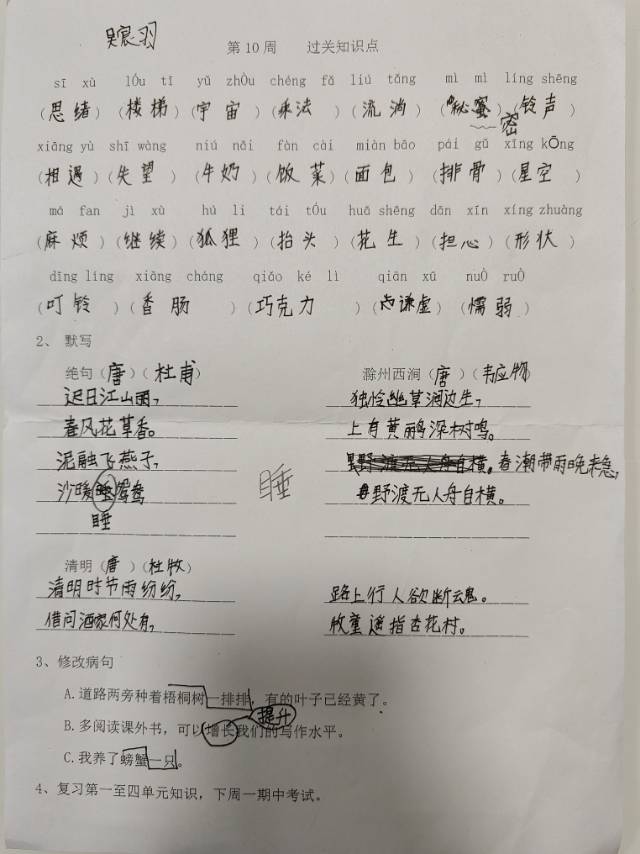 吴宸羽
第10周 过关知识点
sī xù lóu tī yǔ zhòu chéng fǎ liú tǎng mì mì líng shēng
（思绪）（楼梯）（宇宙）（乘法）（流淌）（秘蜜）（铃声）
密
xiāng yù shī wàng niú nǎi fàn cài miàn bāo pái gǔ xīng kōng
（相遇）（失望）（牛奶）（饭菜）（面包）（排骨）（星空）
má fan jì xù hú li tái tóu huā shēng dān xīn xíng zhuàng
（麻烦）（继续）（狐狸）（抬头）（花生）（担心）（形状）
dīng líng xiāng cháng qiǎo kè lì qiān xū nuò ruò
（叮铃）（香肠）（巧克力）（谦虚）（懦弱）
2、 默写
绝句（唐）（杜甫） 滁州西涧（唐）（韦应物）
迟日江山丽， 独怜幽草涧边生，
春风花草香。 上有黄鹂深树鸣。
泥融飞燕子， 春潮带雨晚来急，
沙暖睡鸳鸯 睡 野渡无人舟自横。
睡
清明（唐）（杜牧）
清明时节雨纷纷， 路上行人欲断魂。
借问酒家何处有， 牧童遥指杏花村。
3、修改病句
A.道路两旁种着梧桐树一排排，有的叶子已经黄了。
提升
B.多阅读课外书，可以增长我们的写作水平。
C.我养了螃蟹一只。
4、复习第一至四单元知识，下周一期中考试。